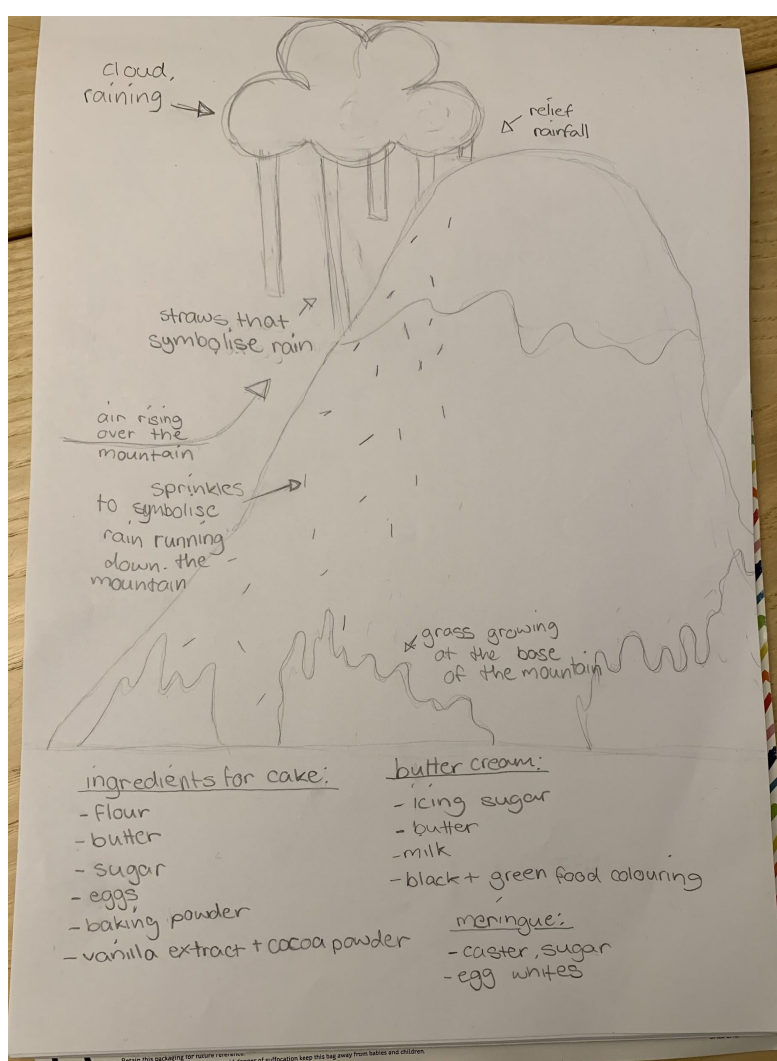 cloud,
raining
relief
rainfall
straws that
symbolise rain
air rising
over the
mountain
sprinkles
to symbolise
rain running
down. the
mountain
grass growing
at the base
of the mountain
ingredients for cake:
- flour
- butter
- sugar
- eggs
- baking powder
- vanilla extract + cocoa powder
butter cream:
- icing sugar
- butter
- milk
- black + green food colouring
meringue:
- caster, sugar
- egg whites
Retain this packaging for future reference.
of suffocation keep this bag away from babies and children.